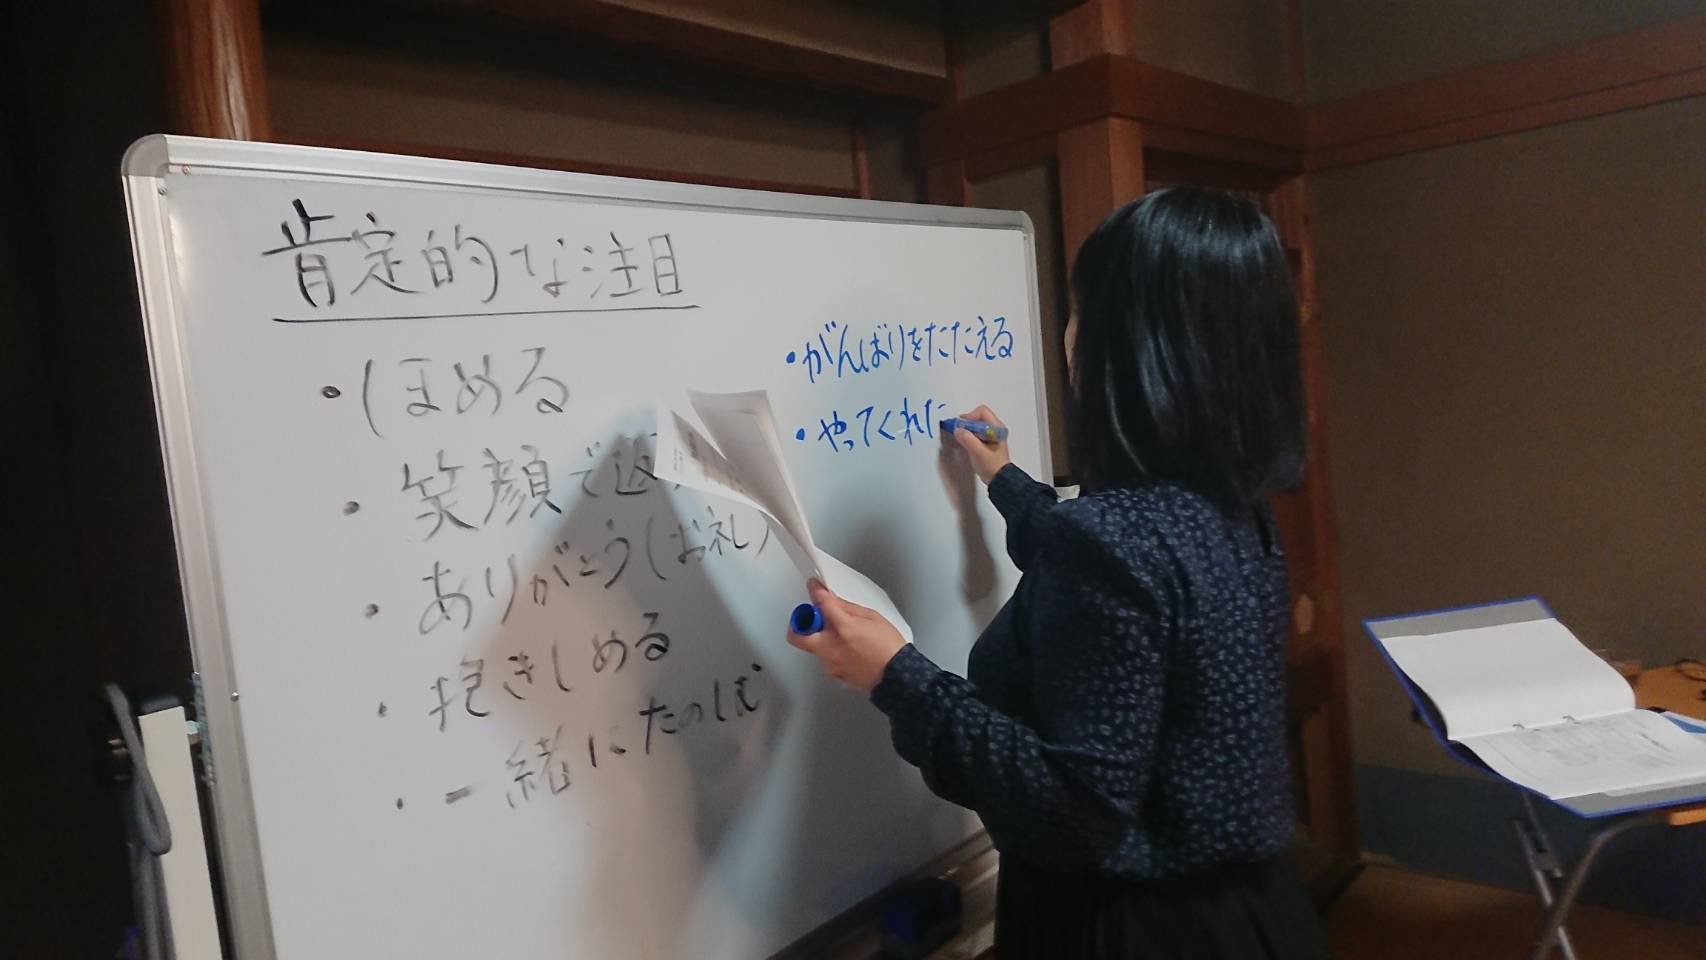 肯定的な注目
・ほめる
・笑顔で返
・ありがとう(お礼)
・抱きしめる
・一緒にたのしむ
・がんばりをたたえる
・やってくれた